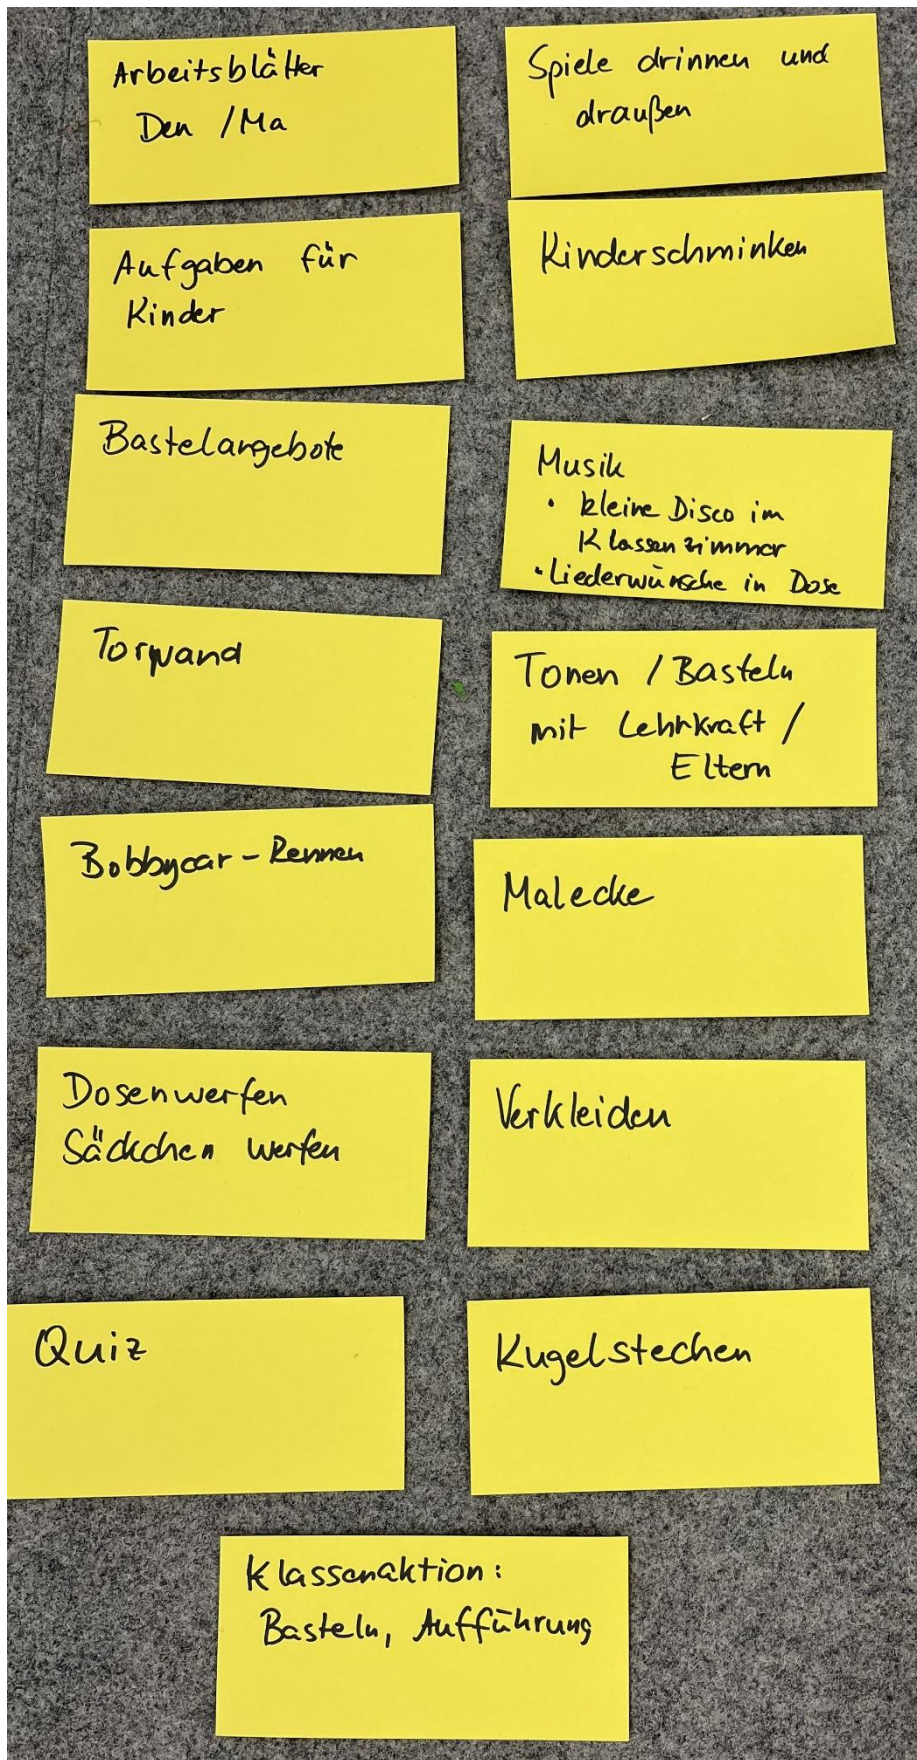 Arbeitsblätter
Den / Ma
Aufgaben für
Kinder
Bastelangebote
Torwand
Bobbycar - Rennen
Dosenwerfen
Säckchen werfen
Quiz
Spiele drinnen und
draußen
Kinderschminken
Musik
• kleine Disco im
Klassenzimmer
• Liederwünsche in Dose
Tonen / Basteln
mit Lehrkraft /
Eltern
Malecke
Verkleiden
Kugelstechen
Klassenaktion:
Basteln, Aufführung